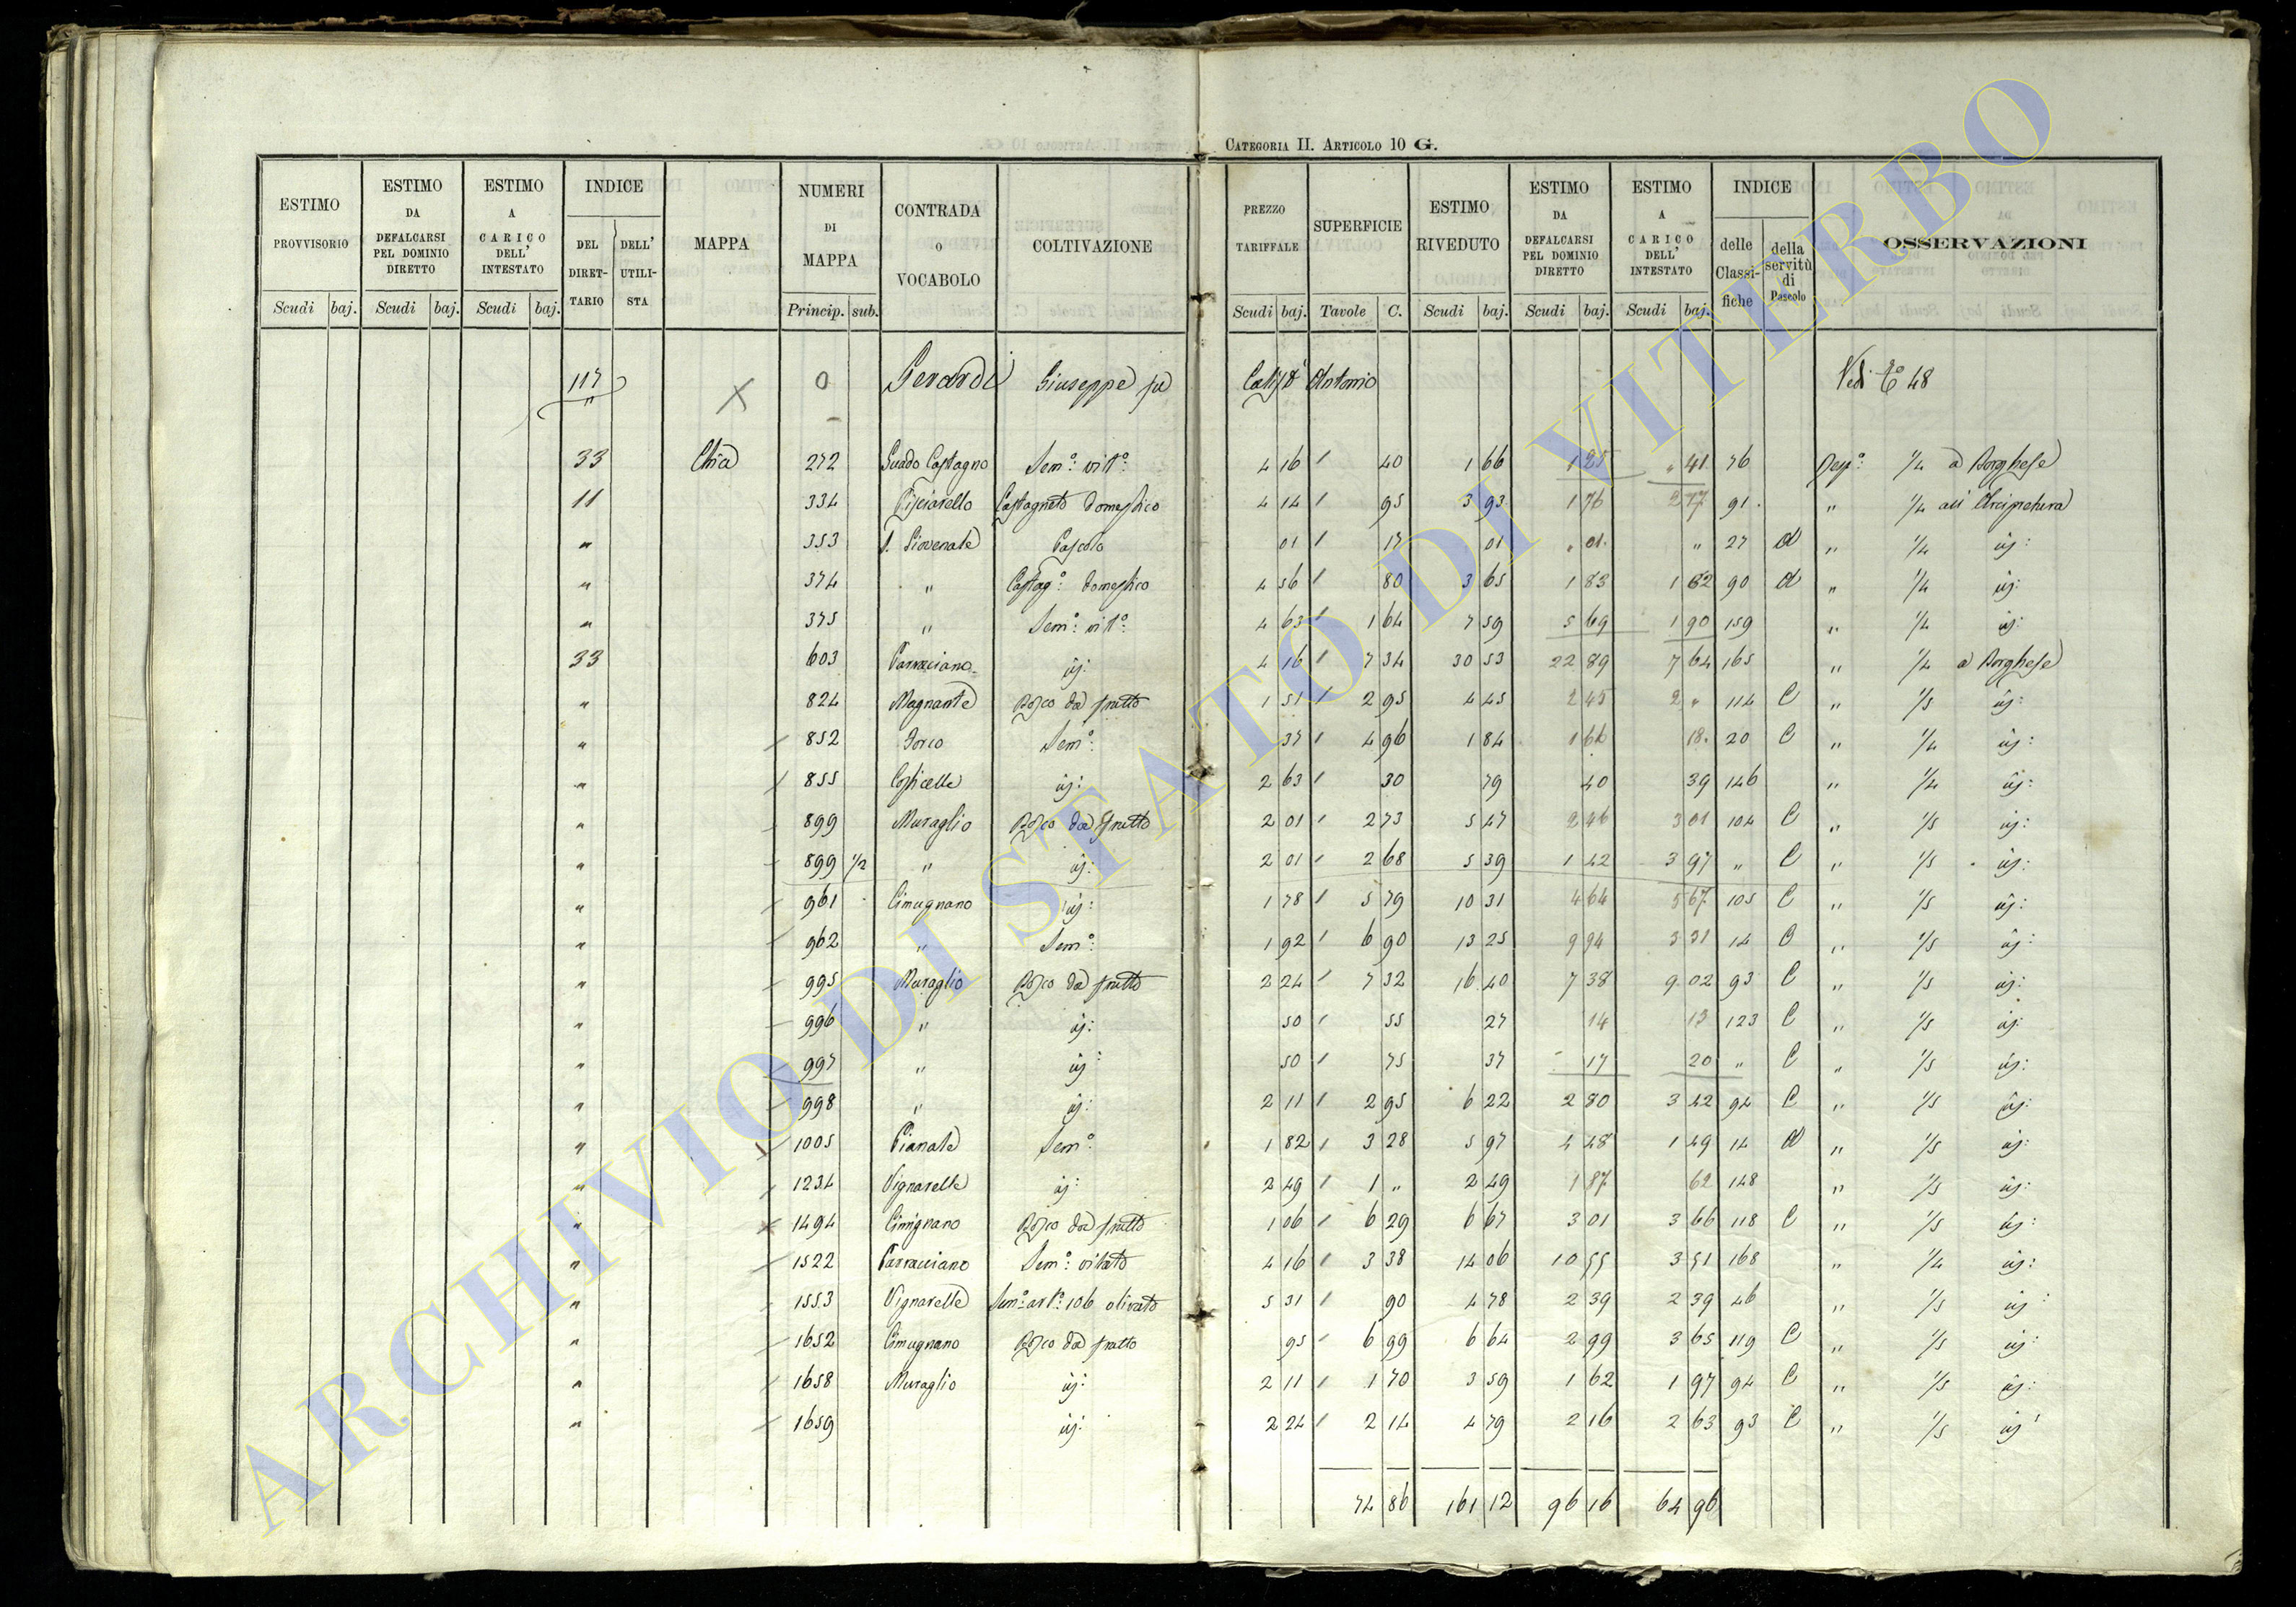 CATEGORIA II. ARTICOLO 10 G.
ESTIMO PROVVISORIO
ESTIMO DA DEFALCARSI PEL DOMINIO DIRETTO
ESTIMO A CARICO DELL' INTESTATO
INDICE
DEL DIRETTARIO
DELL' UTILISTA
MAPPA
NUMERI DI MAPPA
CONTRADA O VOCABOLO
COLTIVAZIONE
PREZZO TARIFFALE
SUPERFICIE
ESTIMO RIVEDUTO
ESTIMO DA DEFALCARSI PEL DOMINIO DIRETTO
ESTIMO A CARICO DELL' INTESTATO
INDICE
delle Classifiche
della servitù di Pascolo
OSSERVAZIONI
Scudi baj. Scudi baj. Scudi baj. Princip. sub. Scudi baj. Tavole C. Scudi baj. Scudi baj. Scudi baj.
117 0 Gerardi Giuseppe fu Antonio Vedi 48
33 Chia 272 Guado Castagno Sem.º vit.º 4 16 40 1 66 1 25 " 41 76 1/4 a Borghese
11 334 Pisciarello Castagneto domestico 4 14 95 3 93 1 76 2 17 91 " 1/4 all'Arcipretura
" 353 Piovenale Pascolo 01 17 01 " 01 " 27 A " 1/4 
" 374 " Castag.º domestico 4 56 80 3 65 1 83 1 82 90 A " 1/4 
" 375 " Sem.º vit.º 4 63 1 64 7 59 5 69 1 90 159 " 1/4 
33 603 Parracciano 4 16 7 34 30 53 22 89 7 64 165 " 1/4 a Borghese
" 824 Magnante Bosco da frutto 1 51 2 95 4 45 2 45 2 " 114 C " 1/5 
" 852 Sem.º 37 4 96 1 84 1 66 18 20 C " 1/4 
" 855 Costicelle 2 63 30 79 40 39 146 " 1/4 
" 899 Muraglio Bosco da frutto 2 01 2 73 5 47 2 46 3 01 104 C " 1/5 
" 899 1/2 " 2 01 2 68 5 39 1 42 3 97 " C " 1/5 
" 961 Cimugnano 1 78 5 79 10 31 4 64 5 67 105 C " 1/5 
" 962 " Sem.º 1 92 6 90 13 25 9 94 3 31 14 " 1/5 
" 995 Muraglio Bosco da frutto 2 24 7 32 16 40 7 38 9 02 93 C " 1/5 
" 996 " 50 55 27 14 13 123 C " 1/5 
" 997 " 50 75 37 17 20 " C " 1/5 
" 998 " 2 11 2 95 6 22 2 80 3 42 94 C " 1/5 
" 1005 Pianale Sem.º 1 82 3 28 5 97 4 48 1 49 14 A " 1/5 
" 1234 Vignarelle 2 49 1 " 2 49 1 87 62 148 " 1/5 
" 1494 Cimignano Bosco da frutto 1 06 6 29 6 67 3 01 3 66 118 C " 1/5 
" 1522 Parracciano Sem.º vitato 4 16 3 38 14 06 10 55 3 51 168 " 1/4 
" 1553 Vignarelle Sem.º art.º 106 olivato 5 31 90 4 78 2 39 2 39 46 " 1/5 
" 1652 Cimugnano Bosco da frutto 95 6 99 6 64 2 99 3 65 119 C " 1/5 
" 1658 Muraglio 2 11 1 70 3 59 1 62 1 97 94 C " 1/5 
" 1659 2 24 2 14 4 79 2 16 2 63 93 C " 1/5 
74 86 161 12 96 16 64 96
ARCHIVIO DI STATO DI VITERBO